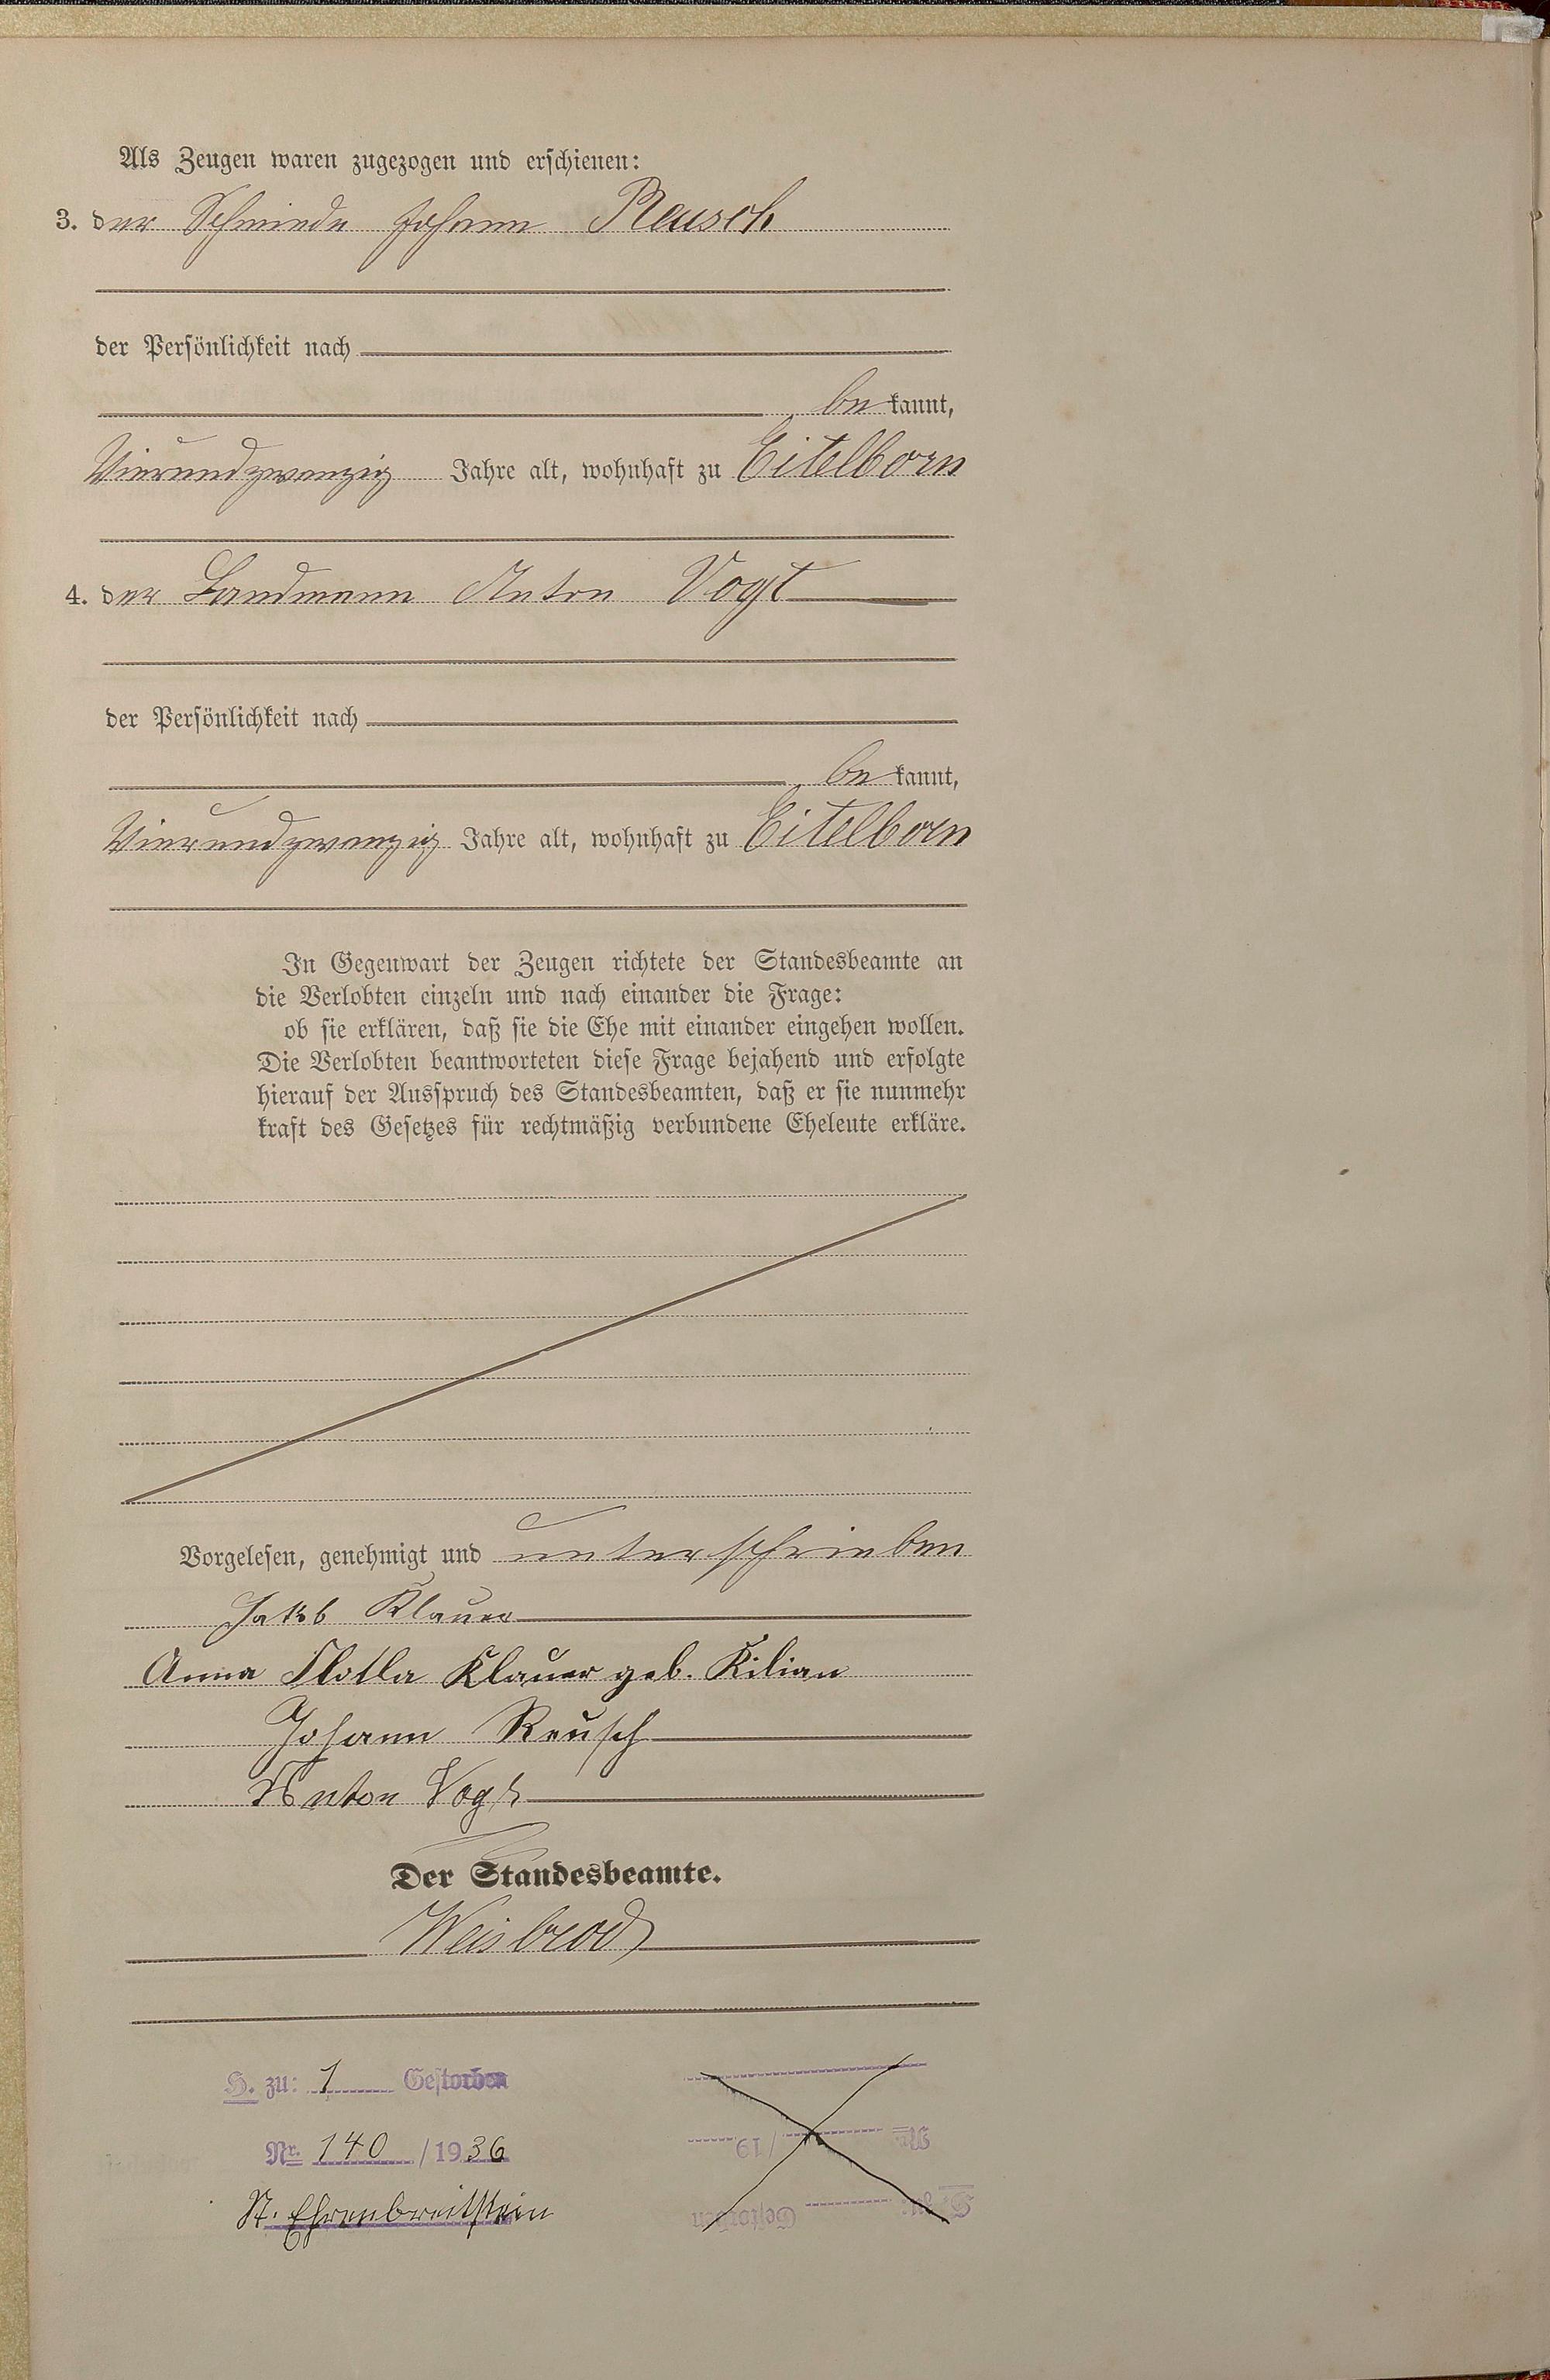 Als Zeugen waren zugezogen und erschienen:
3. der Schmiede Johann Reusch
der Persönlichkeit nach
be kannt,
Vierundzwanzig Jahre alt, wohnhaft zu Eitelborn
4. der Landmann Anton Vogt
der Persönlichkeit nach
be kannt,
Vierundzwanzig Jahre alt, wohnhaft zu Eitelborn
In Gegenwart der Zeugen richtete der Standesbeamte an
die Verlobten einzeln und nach einander die Frage:
ob sie erklären, daß sie die Ehe mit einander eingehen wollen.
Die Verlobten beantworteten diese Frage bejahend und erfolgte
hierauf der Ausspruch des Standesbeamten, daß er sie nunmehr
kraft des Gesetzes für rechtmäßig verbundene Eheleute erkläre.
Vorgelesen, genehmigt und unterschrieben
Jakob Klauer
Anna Klauer geb. Kilian
Johann Reusch
Anton Vogt
Der Standesbeamte.
Weisbrod
H. zu: 1 Gestorben
Nr. 140 / 1936
St. Ehrenbreitstein
H. zu: Gestorben
Nr. / 19